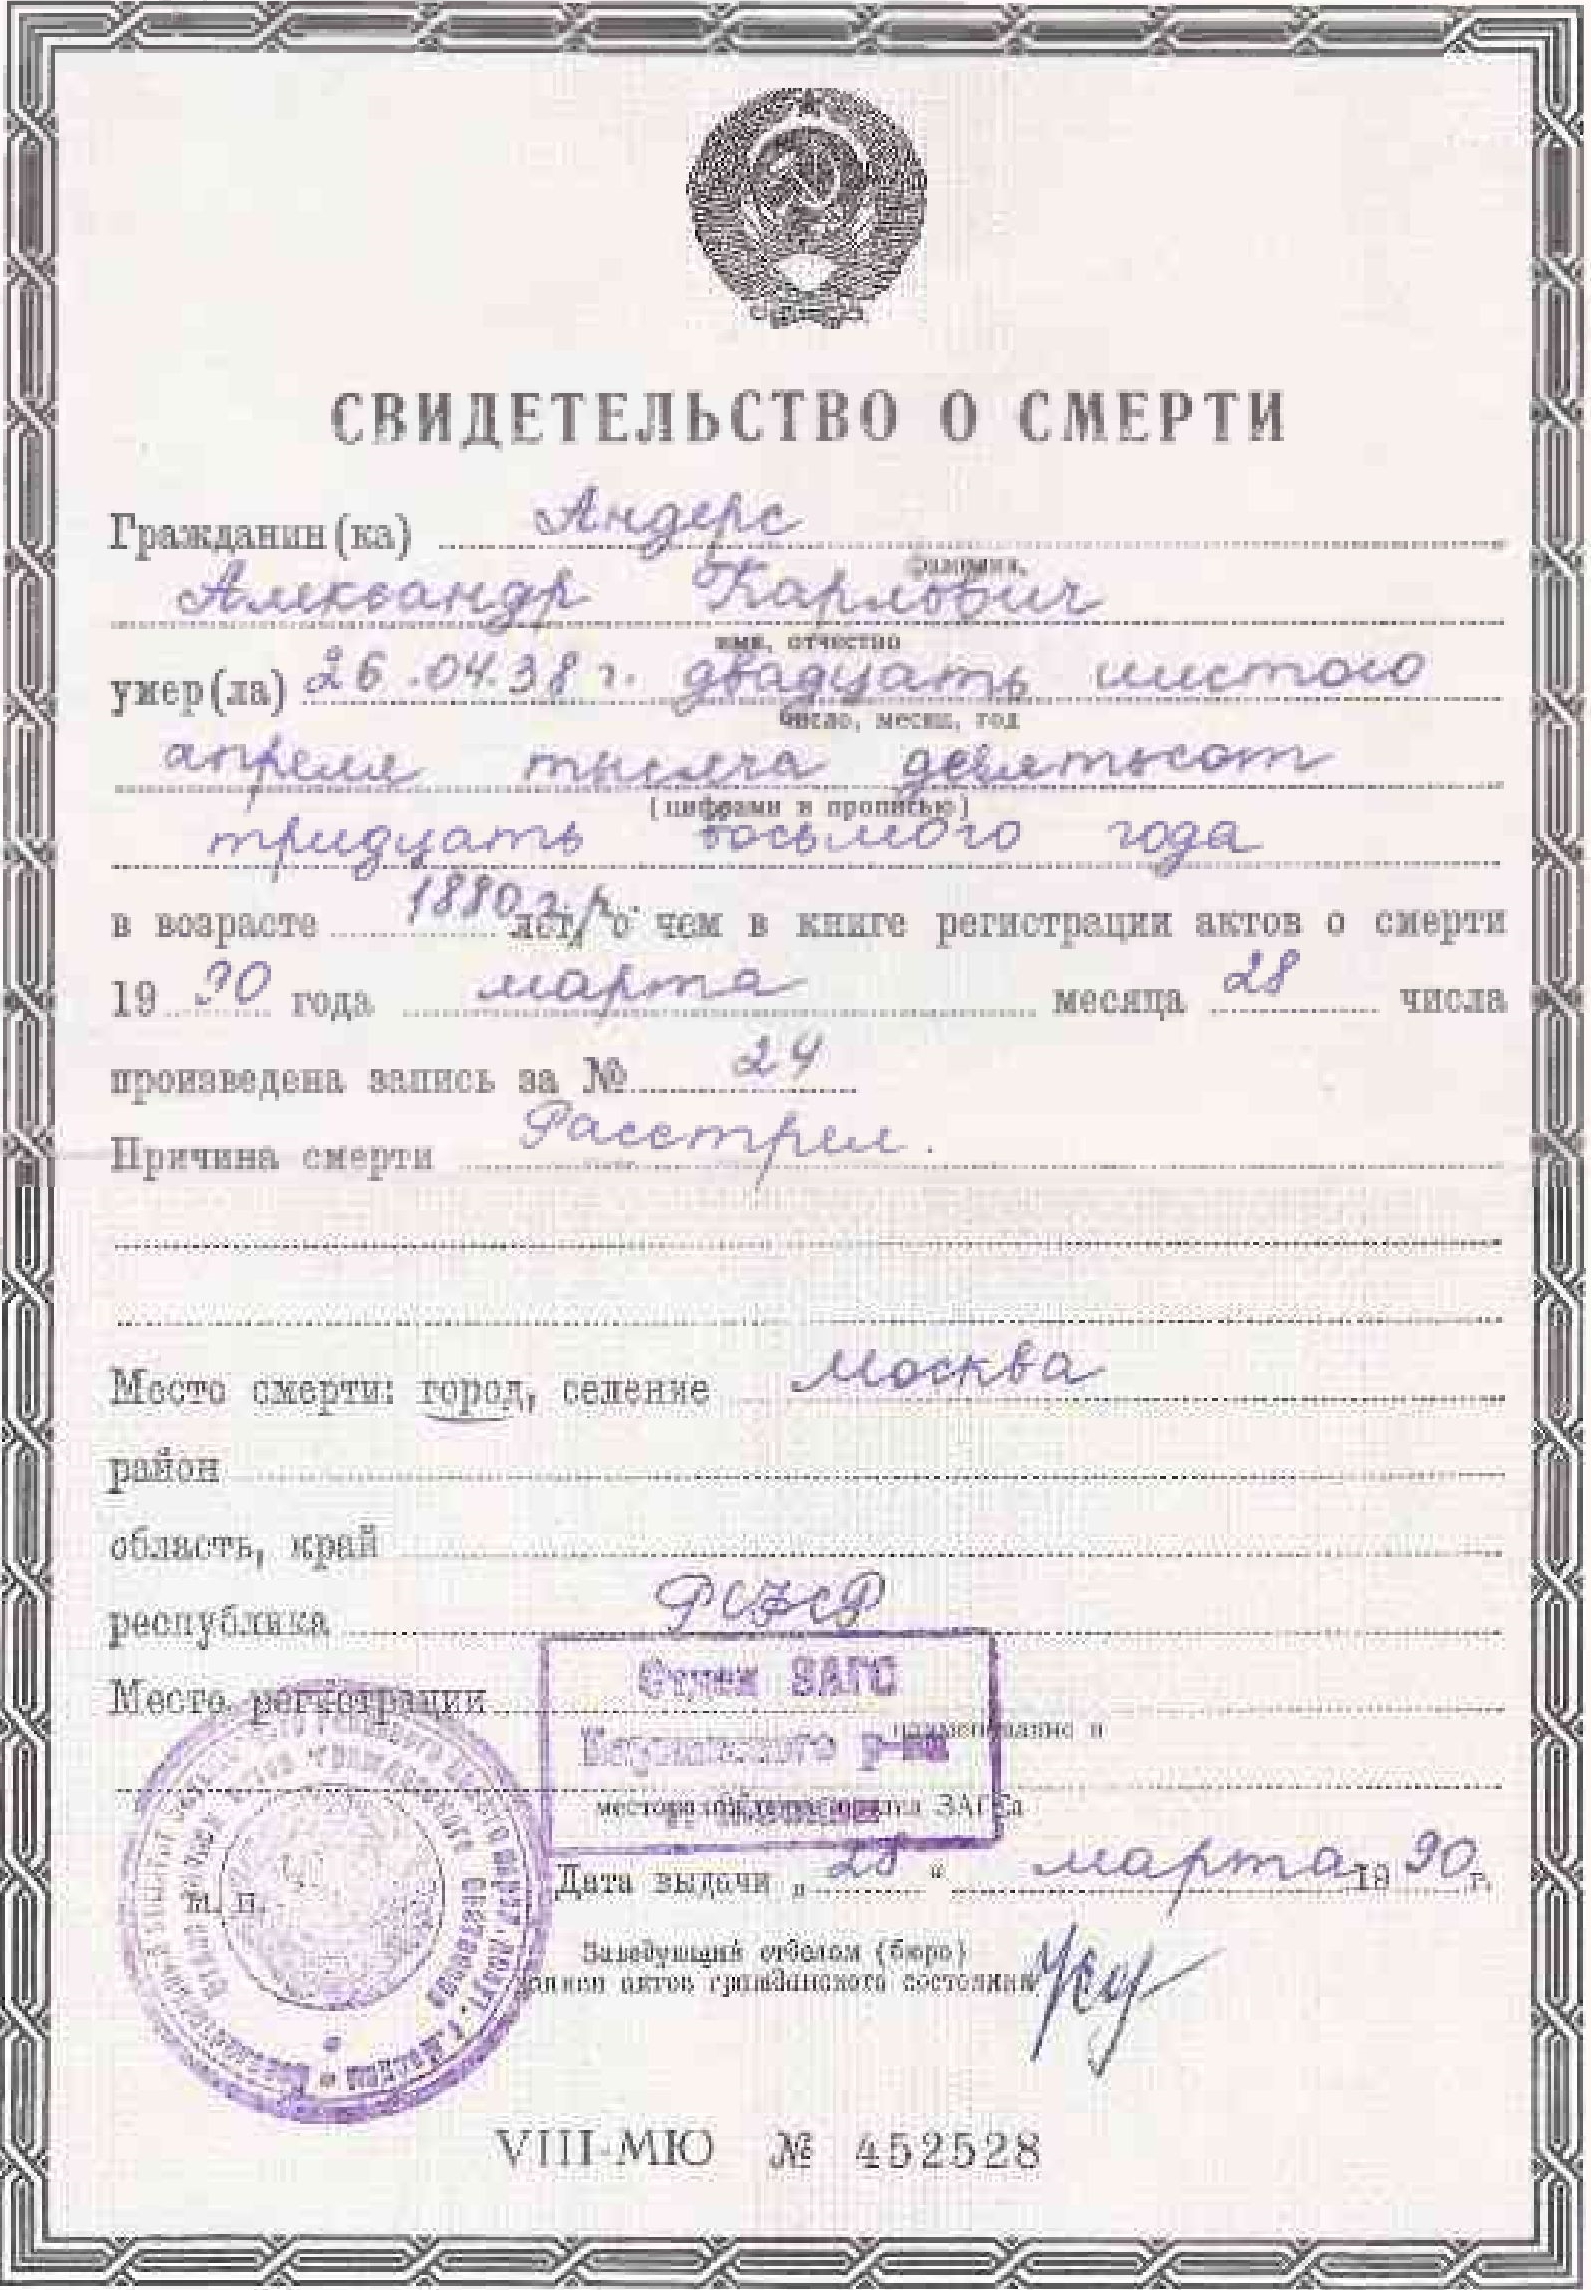 СВИДЕТЕЛЬСТВО О СМЕРТИ
Гражданин(ка) Андерс
фамилия,
Александр Карлович
имя, отчество
умер(ла) 26.04.38 г. двадцать шестого
число, месяц, год
апреля тысяча девятьсот
(цифрами и прописью)
тридцать восьмого года
в возрасте 1880 г.р. лет, о чем в книге регистрации актов о смерти
19 90 года марта месяца 28 числа
произведена запись за № 24
Причина смерти Расстрел.
Место смерти: город, селение Москва
район
область, край
республика РСФСР
Место регистрации
Отдел ЗАГС
наименование и
р-на
местонахождение органа ЗАГСа
Дата выдачи „ 28 “ марта 19 90 г.
М. П.
Заведующий отделом (бюро)
записи актов гражданского состояния
VIII-МЮ № 452528